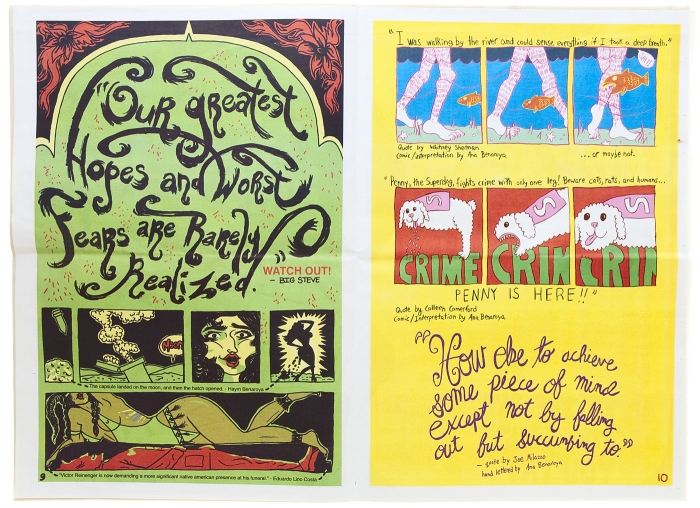 "Our greatest
Hopes and Worst
Fears are Rarely
Realized."
WATCH OUT!
- BIG STEVE
The capsule landed on the moon, and then the hatch opened. - Haym Benaroya
"Victor Reinenger is now demanding a more significant native american presence at his funeral." - Eduardo Lino Costa
9
"I was walking by the river and could sense everything if I took a deep breath."
Quote by Whitney Sherman
Comic/Interpretation by Ana Benaroya
...or maybe not.
"Penny, the Superdog, fights crime with only one leg! Beware cats, rats, and humans...
S
S
S
CRIME
CRIM
CRIM
PENNY IS HERE!!"
Quote by Colleen Comerford
Comic/Interpretation by Ana Benaroya
"How else to achieve
some piece of mind
except not by falling
out but succumbing to."
- quote by Joe Milazzo
hand lettered by Ana Benaroya
10